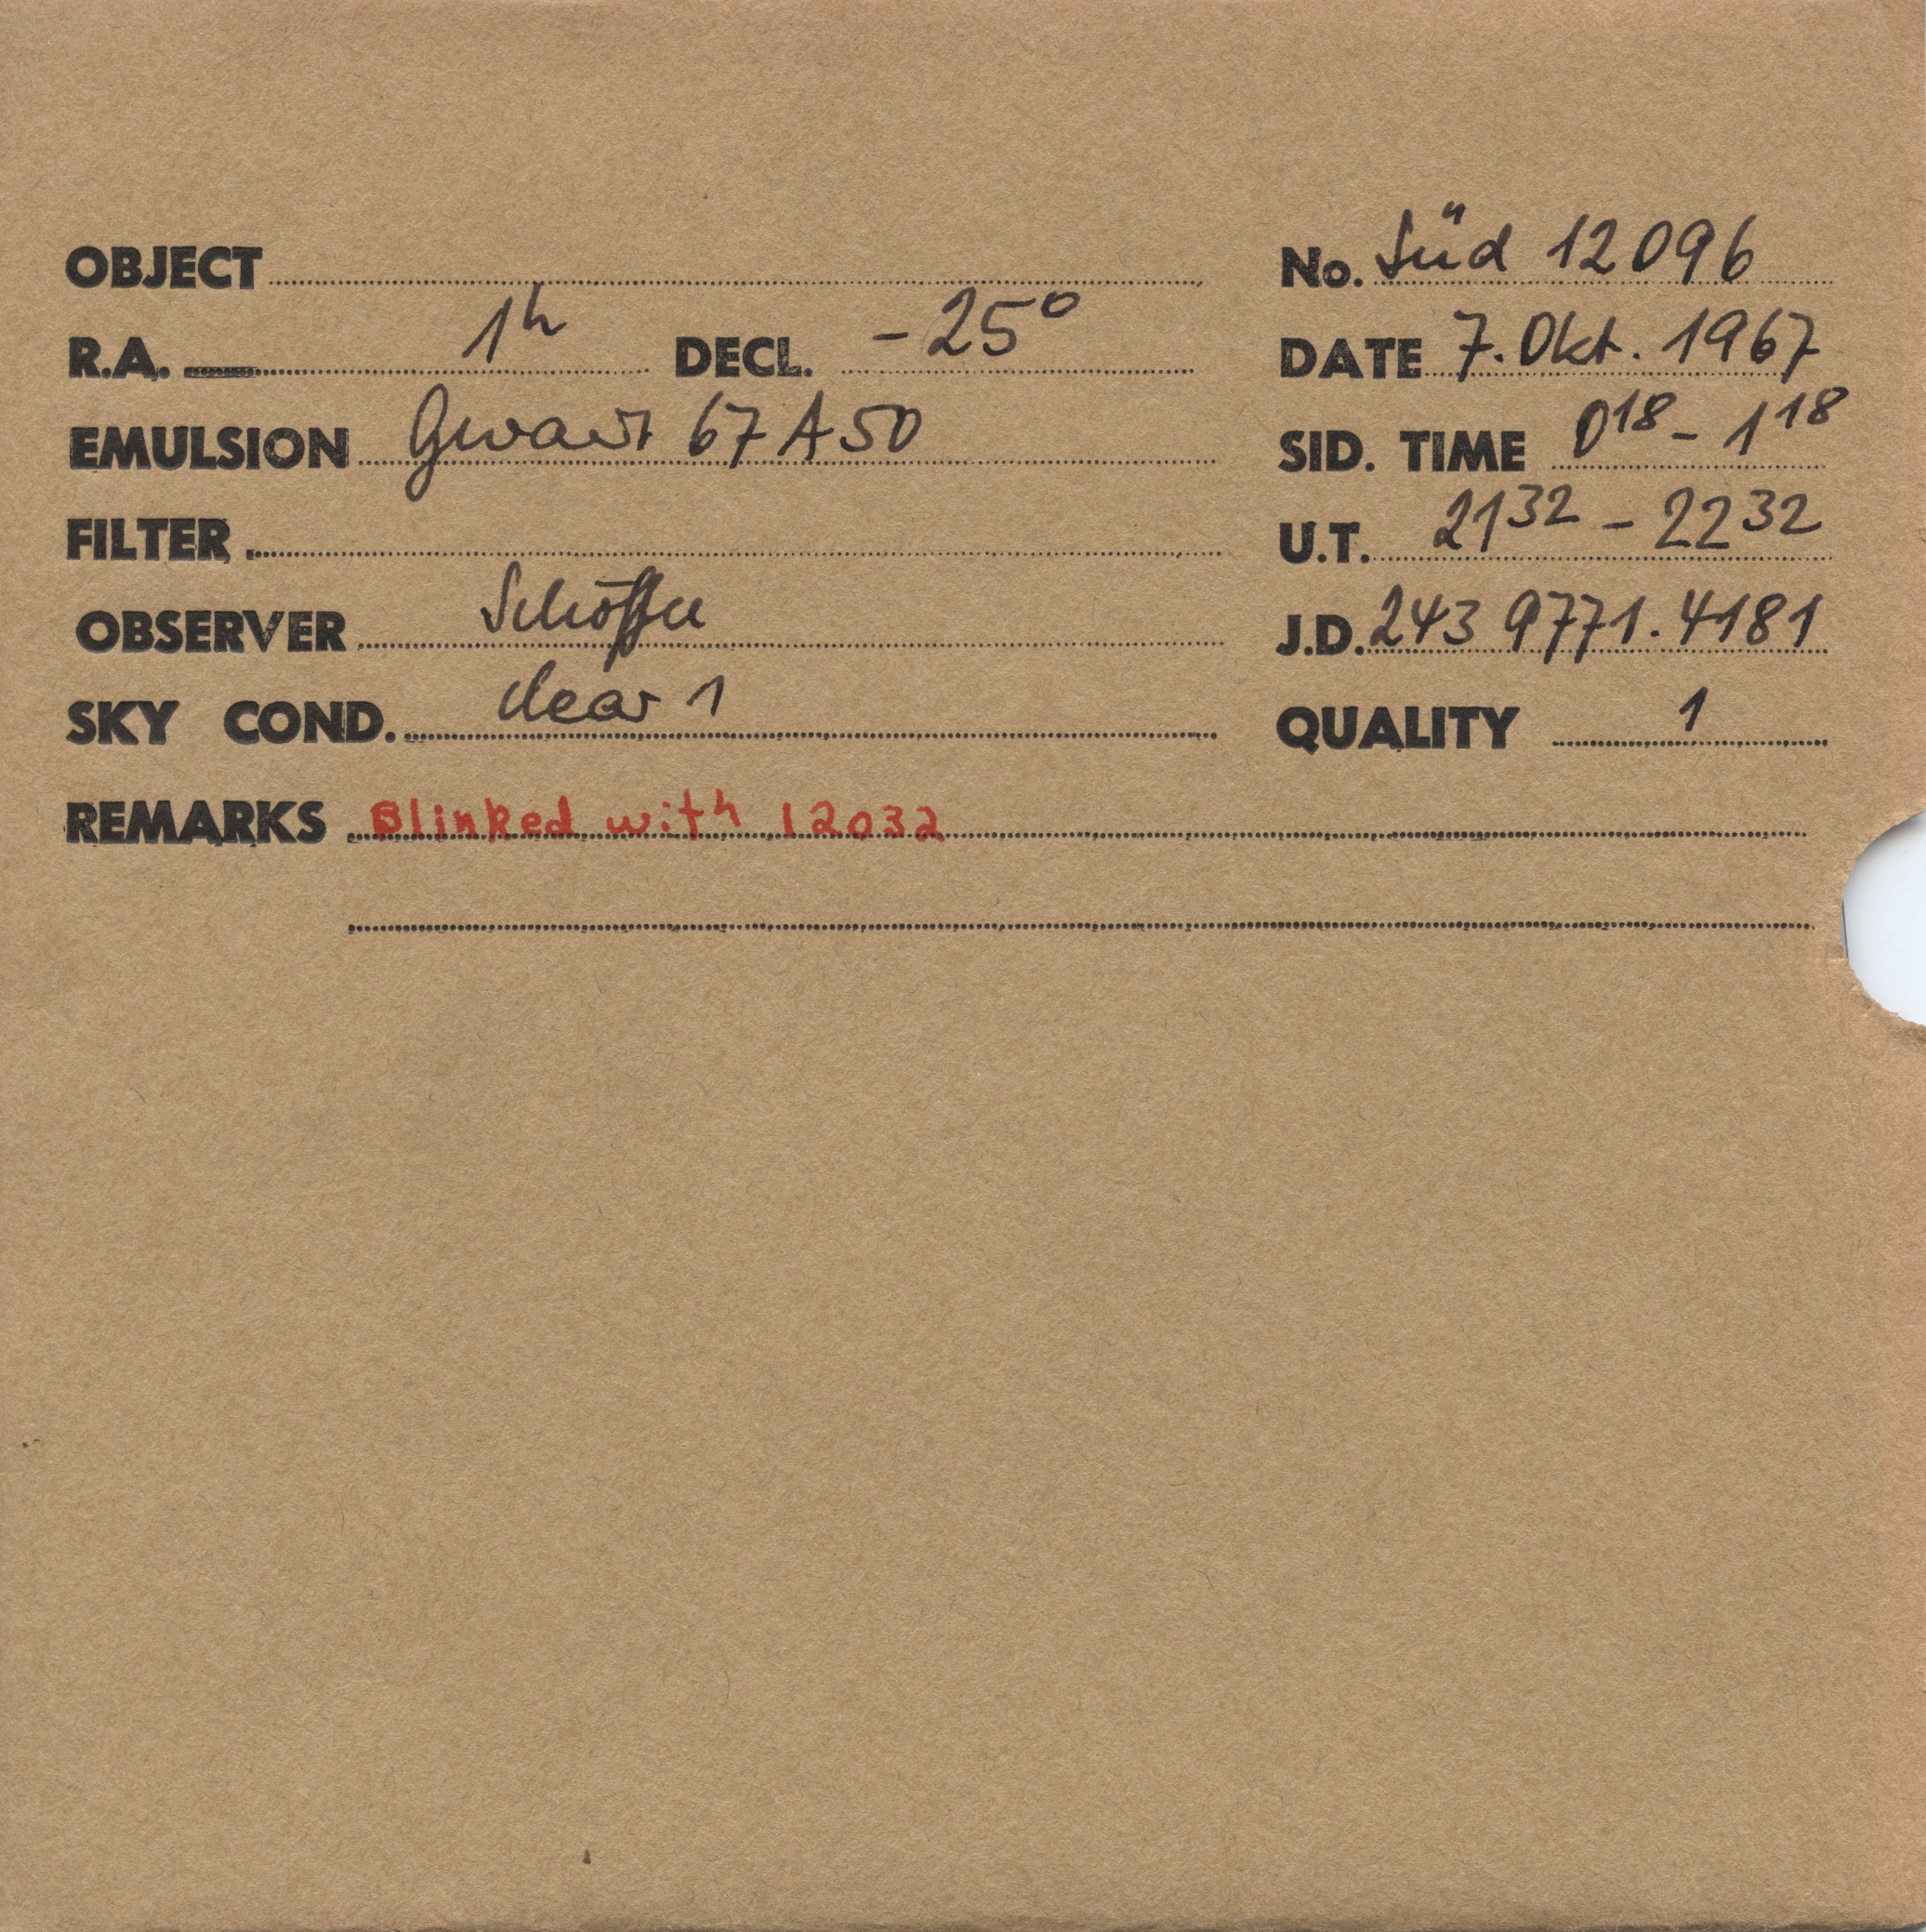 OBJECT No. Süd 12096
R.A. 1h DECL. -25° DATE 7. Okt. 1967
EMULSION Gevaert 67 A 50 SID. TIME 0 18 - 1 18
FILTER U.T. 21 32 - 22 32
OBSERVER Schöffel J.D. 243 9771.4181
SKY COND. clear 1 QUALITY 1
REMARKS Blinked with 12032